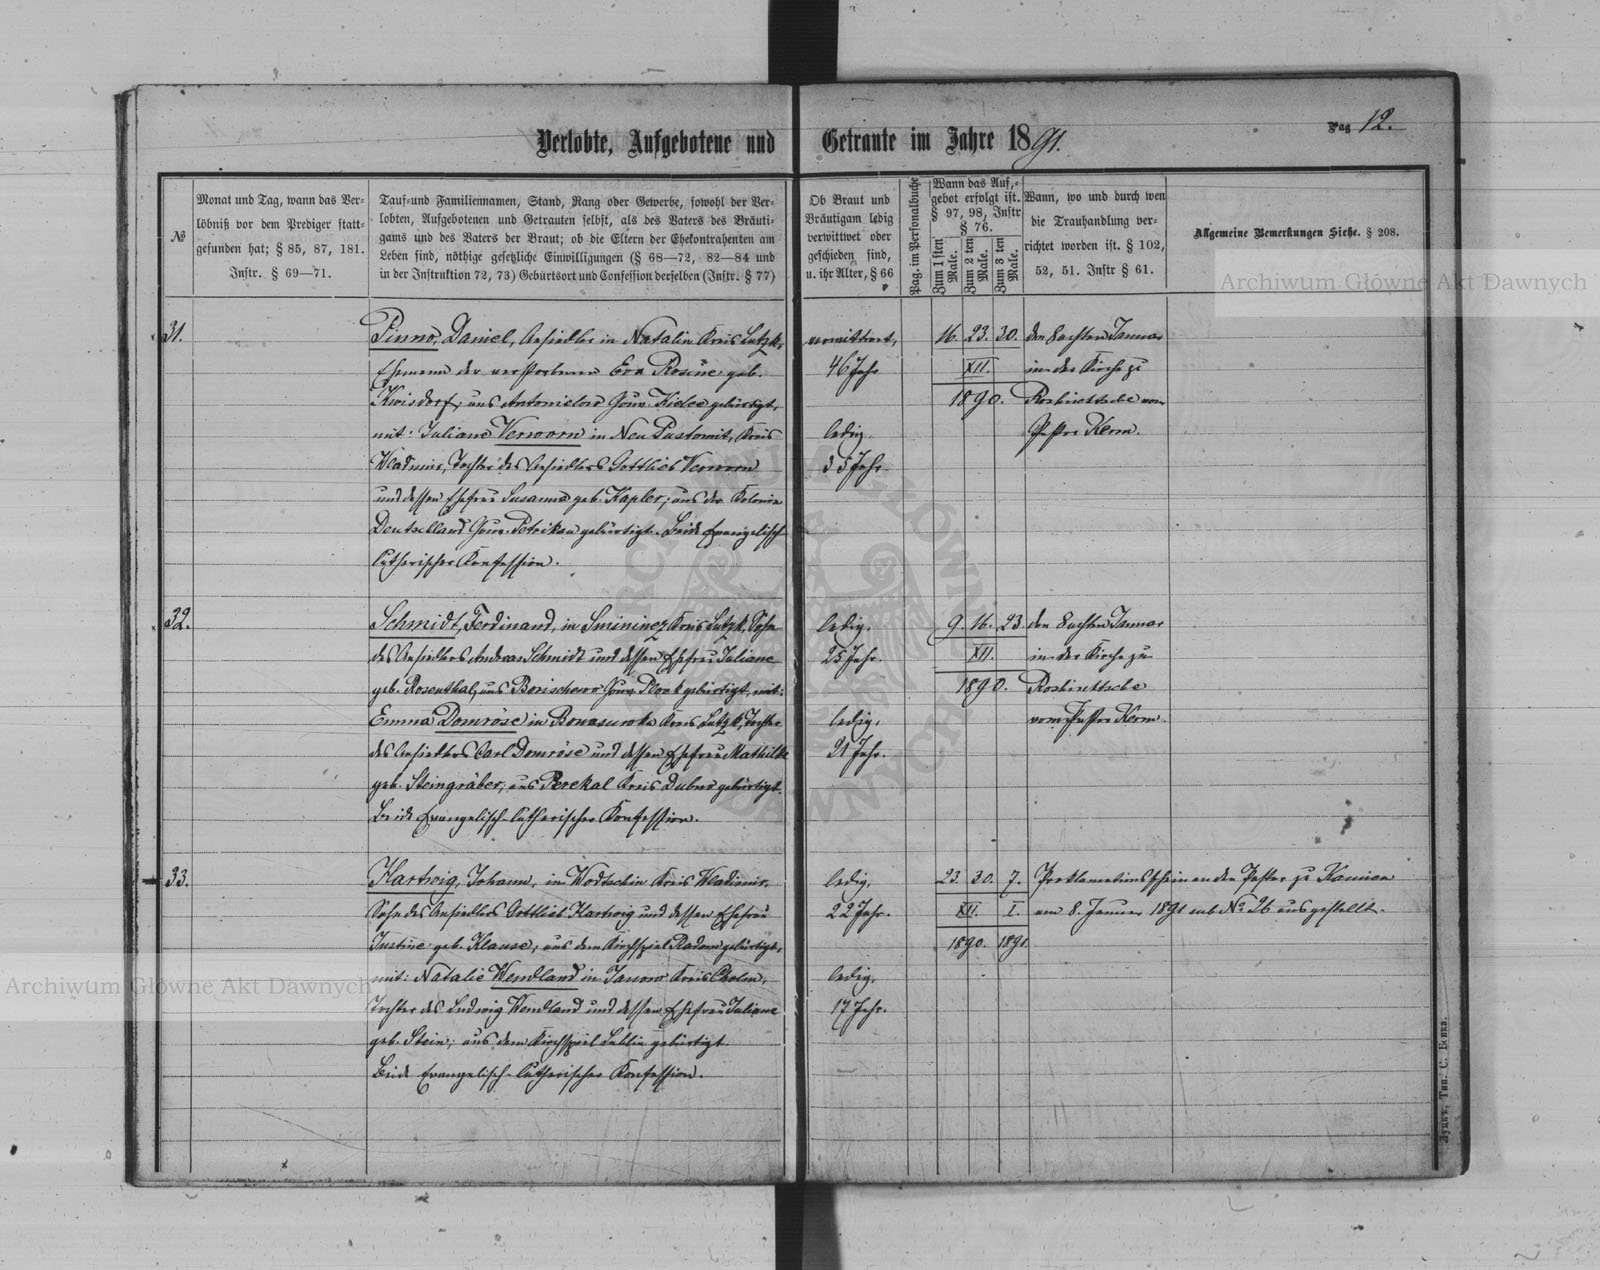 Verlobte, Aufgebotene und Getraute im Jahre 1891.
Pag 12.
№
Monat und Tag, wann das Ver-
löbniß vor dem Prediger statt-
gefunden hat; § 85, 87, 181.
Instr. § 69—71.
Tauf- und Familiennamen, Stand, Rang oder Gewerbe, sowohl der Ver-
lobten, Aufgebotenen und Getrauten selbst, als des Vaters des Bräuti-
gams und des Vaters der Braut; ob die Eltern der Ehekontrahenten am
Leben sind, nöthige gesetzliche Einwilligungen (§ 68—72, 82—84 und
in der Instruktion 72, 73) Geburtsort und Confession derselben (Instr. § 77)
Ob Braut und
Bräutigam ledig
verwittwet oder
geschieden sind,
u. ihr Alter, § 66
Pag. im Personalbuche
Wann das Auf-
gebot erfolgt ist.
§ 97, 98, Instr
§ 76.
Zum 1sten Male.
Zum 2 ten Male.
Zum 3 ten Male.
Wann, wo und durch wen
die Trauhandlung ver-
richtet worden ist. § 102,
52, 51. Instr § 61.
Allgemeine Bemerkungen Siehe. § 208.
Archiwum Główne Akt Dawnych
31.
Pinno, Daniel, Ansiedler in Natalin Kreis Lutzk,
Ehemann der verstorbenen Eva Rosine geb.
Krisdorf, aus Antonielow Gouv. Kielce gebürtigt,
mit: Juliane Verworn in Neu Pustomit, Kreis
Wladimir, Tochter des Ansiedlers Gottlieb Verworn
und dessen Ehefrau Susanna geb. Kapler; aus der Kolonie
Deutschland Gouv. Petrikau gebürtigt. Beide Evangelisch-
lutherischer Konfession.
verwittwet,
46 Jahr
ledig.
35 Jahr.
16. 23. 30.
XII.
1890.
den Sechsten Januar
in der Kirche zu
Roshischtsche vom
Pastor Kerm.
32.
Schmidt, Ferdinand, in Smininez Kreis Lutzk, Sohn
des Ansiedlers Andreas Schmidt und dessen Ehefrau Juliane
geb. Rosenthal, aus Borischewo Gouv. Plozk gebürtigt, mit:
Emma Domröse in Bonasurowka Kreis Lutzk, Tochter
des Ansiedlers Carl Domröse und dessen Ehefrau Mathilde
geb. Steingräber; aus Perekal Kreis Dubno gebürtigt.
Beide Evangelisch-lutherischer Konfession.
ledig.
25 Jahr.
ledig,
21 Jahr.
9. 16. 23.
XII.
1890.
den Sechsten Januar
in der Kirche zu
Roshischtsche
vom Pastor Kerm.
33.
Hartwig, Johann, in Wodtschin Kreis Wladimir,
Sohn des Ansiedlers Gottlieb Hartwig und dessen Ehefrau
Justine geb. Klause; aus dem Kirchspiel Radom gebürtigt,
mit: Natalie Wendland in Janow Kreis Cholm,
Tochter des Ludwig Wendland und dessen Ehefrau Juliane
geb. Stein; aus dem Kirchspiel Lublin gebürtigt.
Beide Evangelisch-lutherischer Konfession.
ledig,
22 Jahr.
ledig,
17 Jahr.
23. 30. 7.
XII. I.
1890. 1891.
Proklamationsschein an den Pastor zu Kamien
am 8. Januar 1891 sub № 26 ausgestellt.
Archiwum Główne Akt Dawnych